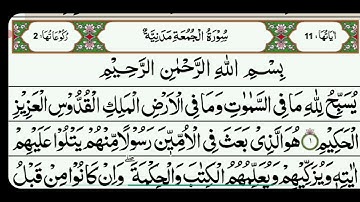 اٰيَاتُهَا: 11 سُوْرَةُ الْجُمُعَةِ مَدَنِيَّةٌ رُكُوْعَاتُهَا: 2
بِسْمِ اللّٰهِ الرَّحْمٰنِ الرَّحِيْمِ
يُسَبِّحُ لِلّٰهِ مَا فِى السَّمٰوٰتِ وَمَا فِى الْاَرْضِ الْمَلِكِ الْقُدُّوْسِ الْعَزِيْزِ
الْحَكِيْمِ ۝۱ هُوَ الَّذِىْ بَعَثَ فِى الْاُمِّيّٖنَ رَسُوْلًا مِّنْهُمْ يَتْلُوْا عَلَيْهِمْ
اٰيٰتِهٖ وَيُزَكِّيْهِمْ وَيُعَلِّمُهُمُ الْكِتٰبَ وَالْحِكْمَةَ ۗ وَاِنْ كَانُوْا مِنْ قَبْلُ